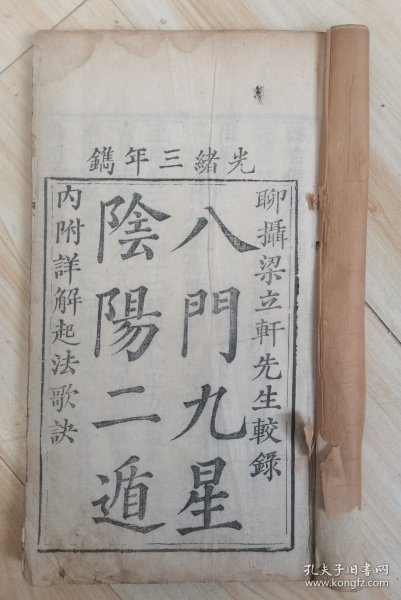 光緒三年鐫
聊攝梁立軒先生較錄
八門九星
陰陽二遁
內附詳解起法歌訣
孔夫子旧书网
www.kongfz.com